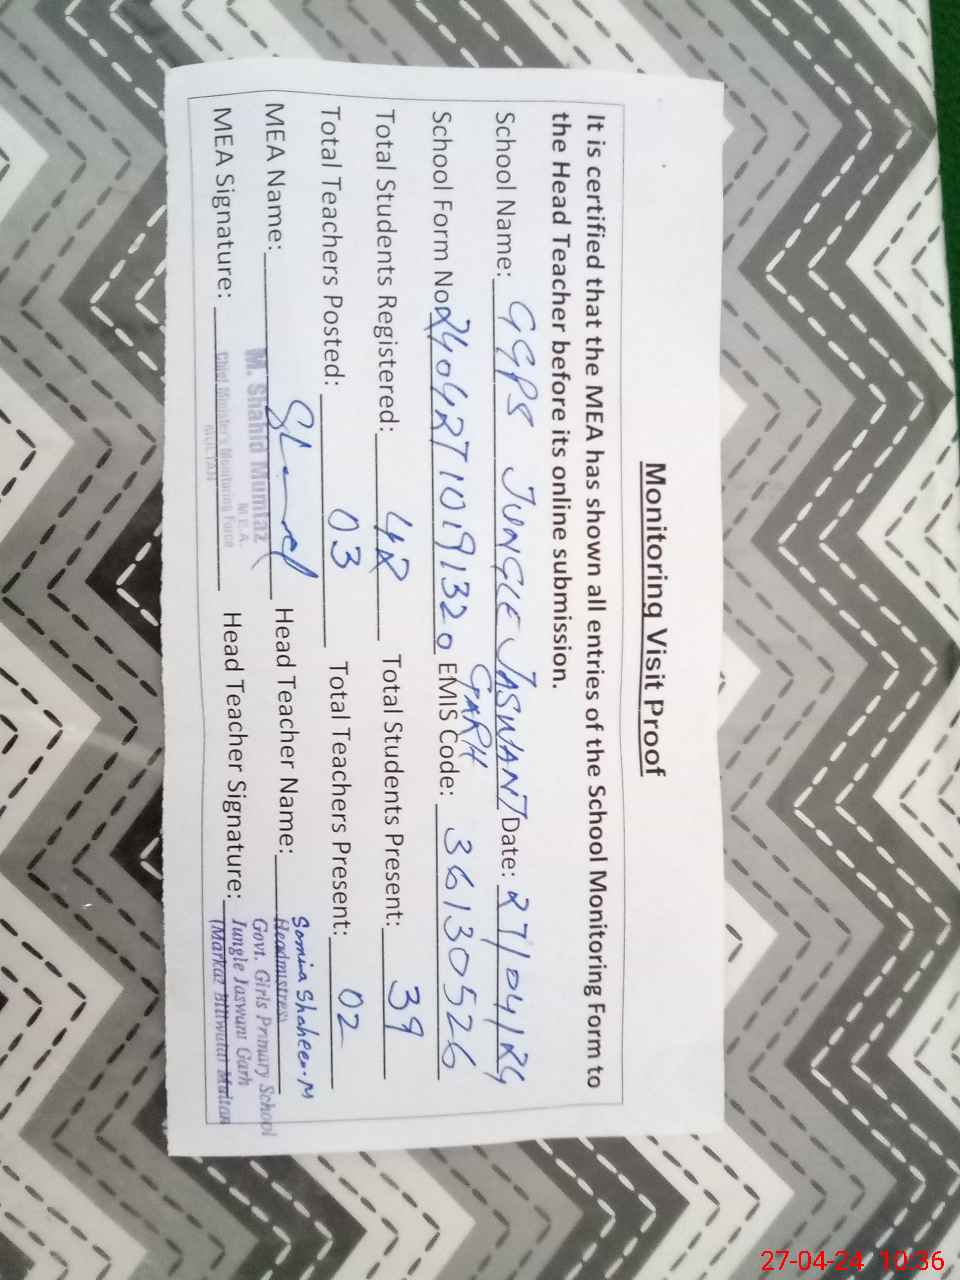 Monitoring Visit Proof
It is certified that the MEA has shown all entries of the School Monitoring Form to
the Head Teacher before its online submission.
School Name: GGPS JUNGLE JASWANT Date: 27/04/24
GARH
School Form No: 24042710191320 EMIS Code: 36130526
Total Students Registered: 42 Total Students Present: 39
Total Teachers Posted: 03 Total Teachers Present: 02
MEA Name: Head Teacher Name: Samina Shaheen.M
M. Shahid Mumtaz
M.E.A.
Chief Minister's Monitoring Force
MULTAN
Headmistress
Govt. Girls Primary School
Jungle Jaswant Garh
(Markaz Multan
MEA Signature: Head Teacher Signature:
27-04-24 10:36